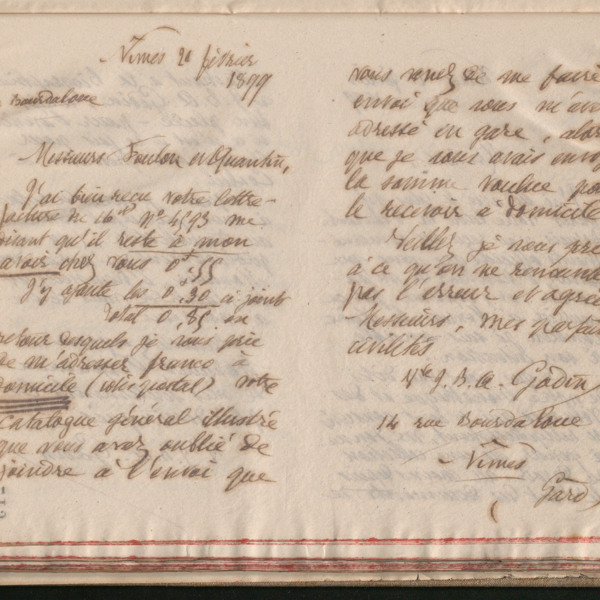 Nimes 20 février
1899
Bourdaloue
Messieurs Foulon et Quantin,
J'ai bien reçu votre lettre-
facture du 16 ct No 4593 me
disant qu'il reste à mon
avoir chez vous 0f.55
J'y ajoute les 0.30 ci joint
Total 0.85 en
retour desquels je vous prie
de m'adresser franco à
domicile (colis postal) votre
Catalogue général illustré
que vous avez oublié de
joindre à l'envoi que
vous venez de me faire
envoi que vous m'avez
adressé en gare, alors
que je vous avais envoyé
la somme voulue pour
le recevoir à domicile
Veillez je vous prie
à ce qu'on ne renouvelle
pas l'erreur et agréez
Messieurs, mes parfaites
civilités
Vve J. B. A. Godin
14 rue Bourdaloue
Nimes
(Gard)